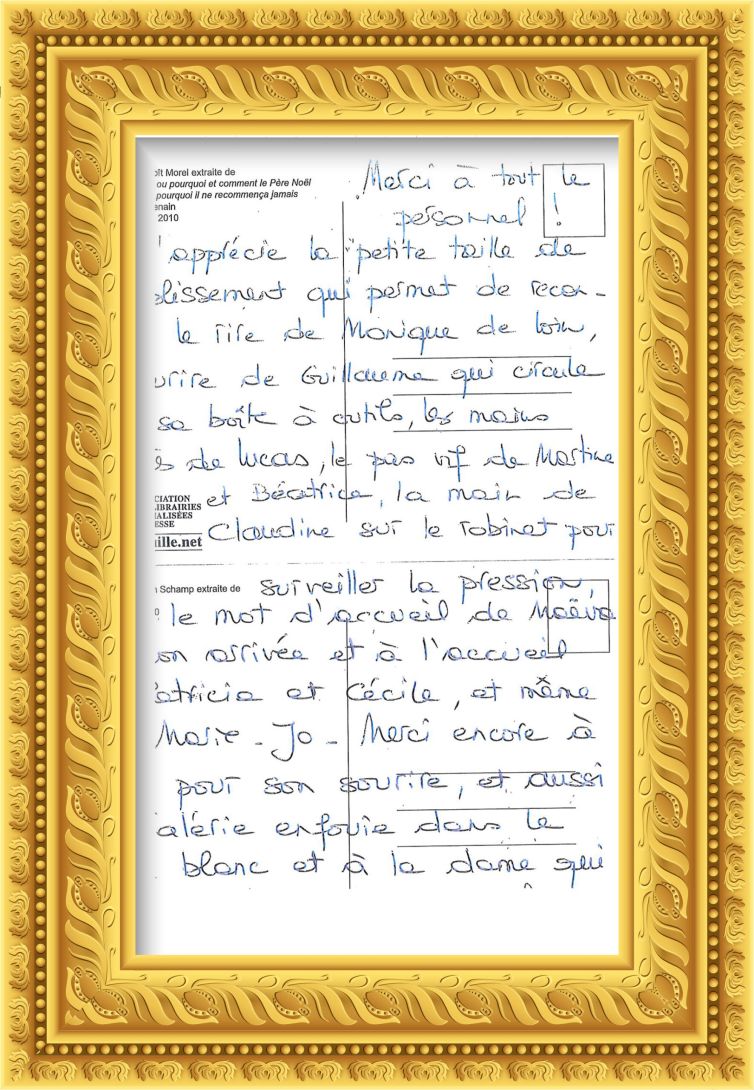 oît Morel extraite de
ou pourquoi et comment le Père Noël
pourquoi il ne recommença jamais
enain
2010
Merci à tout le
personnel !
' apprécie la petite taille de
blissement qui permet de recon-
le rire de Monique de loin,
urire de Guillaume qui circule
sa boîte à outils, les mains
s de Lucas, le pas vif de Martine
et Béatrice, la main de
CIATION
LIBRAIRIES
IALISÉES
ESSE
ille.net
Claudine sur le robinet pour
n Schamp extraite de
surveiller la pression,
le mot d'accueil de Maëva
on arrivée et à l'accueil
atricia et Cécile, et même
Marie-Jo - Merci encore à
pour son sourire, et aussi
alérie enfouie dans le
blanc et à la dame qui